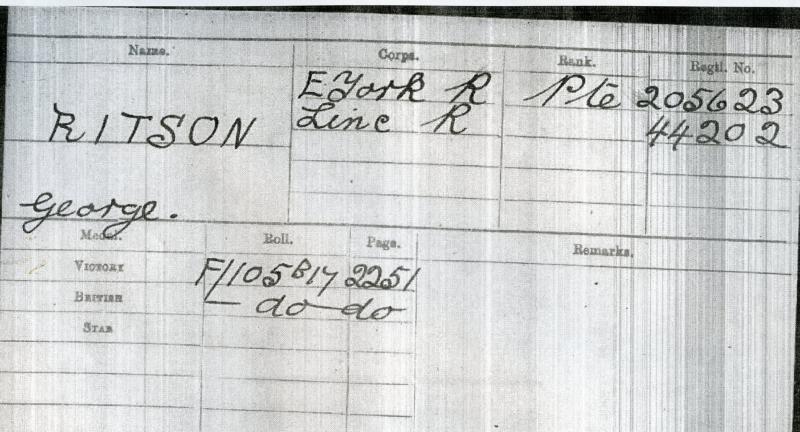 Name. Corps. Rank. Regtl. No.
E York R Pte 205623
RITSON Linc R 44202
George.
Medal. Roll. Page. Remarks.
VICTORY F/105B17 2251
BRITISH — do — do
STAR